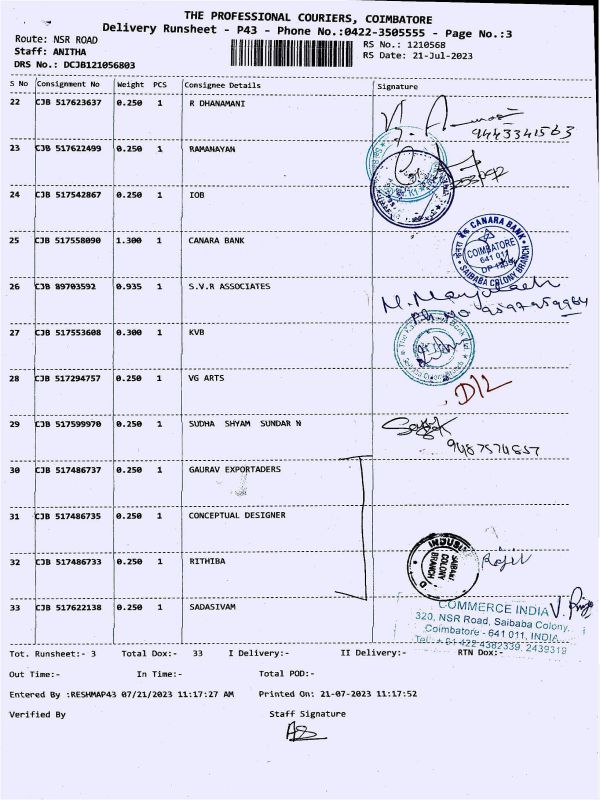 THE PROFESSIONAL COURIERS, COIMBATORE
Delivery Runsheet - P43 - Phone No.:0422-3505555 - Page No.:3
Route: NSR ROAD
RS No.: 1210568
Staff: ANITHA
RS Date: 21-Jul-2023
DRS No.: DCJB121056803
S No Consignment No Weight PCS Consignee Details Signature
22 CJB 517623637 0.250 1 R DHANAMANI
9443341563
23 CJB 517622499 0.250 1 RAMANAYAN
24 CJB 517542867 0.250 1 IOB
25 CJB 517558090 1.300 1 CANARA BANK
CANARA BANK
COIMBATORE
641 011
SAIBABA COLONY BRANCH
26 CJB 89703592 0.935 1 S.V.R ASSOCIATES
Ph No 9597959964
27 CJB 517553608 0.300 1 KVB
28 CJB 517294757 0.250 1 VG ARTS
D/L
29 CJB 517599970 0.250 1 SUDHA SHYAM SUNDAR N
9487574657
30 CJB 517486737 0.250 1 GAURAV EXPORTADERS
31 CJB 517486735 0.250 1 CONCEPTUAL DESIGNER
32 CJB 517486733 0.250 1 RITHIBA
COLONY
BRANCH
33 CJB 517622138 0.250 1 SADASIVAM
COMMERCE INDIA
320, NSR Road, Saibaba Colony,
Coimbatore - 641 011, INDIA
Tel: +91 422 4382339, 2439319
Tot. Runsheet:- 3 Total Dox:- 33 I Delivery:- II Delivery:- RTN Dox:-
Out Time:- In Time:- Total POD:-
Entered By :RESHMAP43 07/21/2023 11:17:27 AM Printed On: 21-07-2023 11:17:52
Verified By Staff Signature